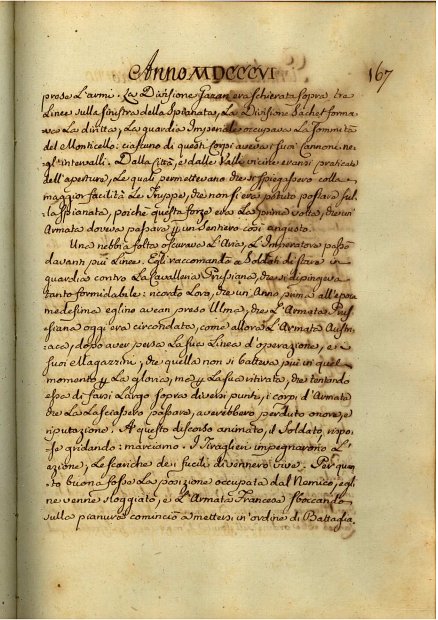 Anno MDCCCVI 167
prese l'armi. La Divisione Gazan era schierata sopra tre
Linee sulla sinistra della Spianata, La Divisione Sachet forma-
va La diritta, La guardia Imperiale occupava La Sommità
del Monticello: ciascuno di questi Corpi aveva i suoi Cannoni ne-
gl'intervalli. Dalla Città, e dalle Valli vicine eransi praticate
dell'aperture, Le quali permettevano che si spiegassero colla
maggior facilità Le Truppe, che non si era potuto postare sul-
la Spianata, poichè questa forze era La prima volta, che un'
Armata doveva passare p un Sentiero così angusto.
Una nebbia folta oscurava L'Aria, L'Imperatore passò
davanti più Linee. Egli raccomandò a Soldati di stare in
guardia contro La Cavalleria Prussiana, che si dipingeva
tanto formidabile: ricordò Loro, che un'Anno prima all'epoca
medesima eglino avean preso Ulma, che L'Armata Prus-
siana oggi era circondata, come allora L'Armata Austri-
aca, dopo aver persa La Sua Linea d'operazione, e i
suoi Magazzini, che quella non si batteva più in quel
momento p La gloria, ma p La sua ritirata, che tentando
essa di farsi Largo sopra diversi punti, i corpi d'Armata
che La Lasciassero passare, averebbero perduto onore, e
riputazione. A questo discorso animato, il Soldato, rispo-
se gridando: marciamo. I Tiraglieri impegnarono L'
azione, Le scariche de i fucili divennero vive. Per quan-
to buona fosse La posizione occupata dal Nemico, egli
ne venne sloggiato, e L'Armata Francese sboccando
sulla pianura cominciò a mettersi in ordine di Battaglia.